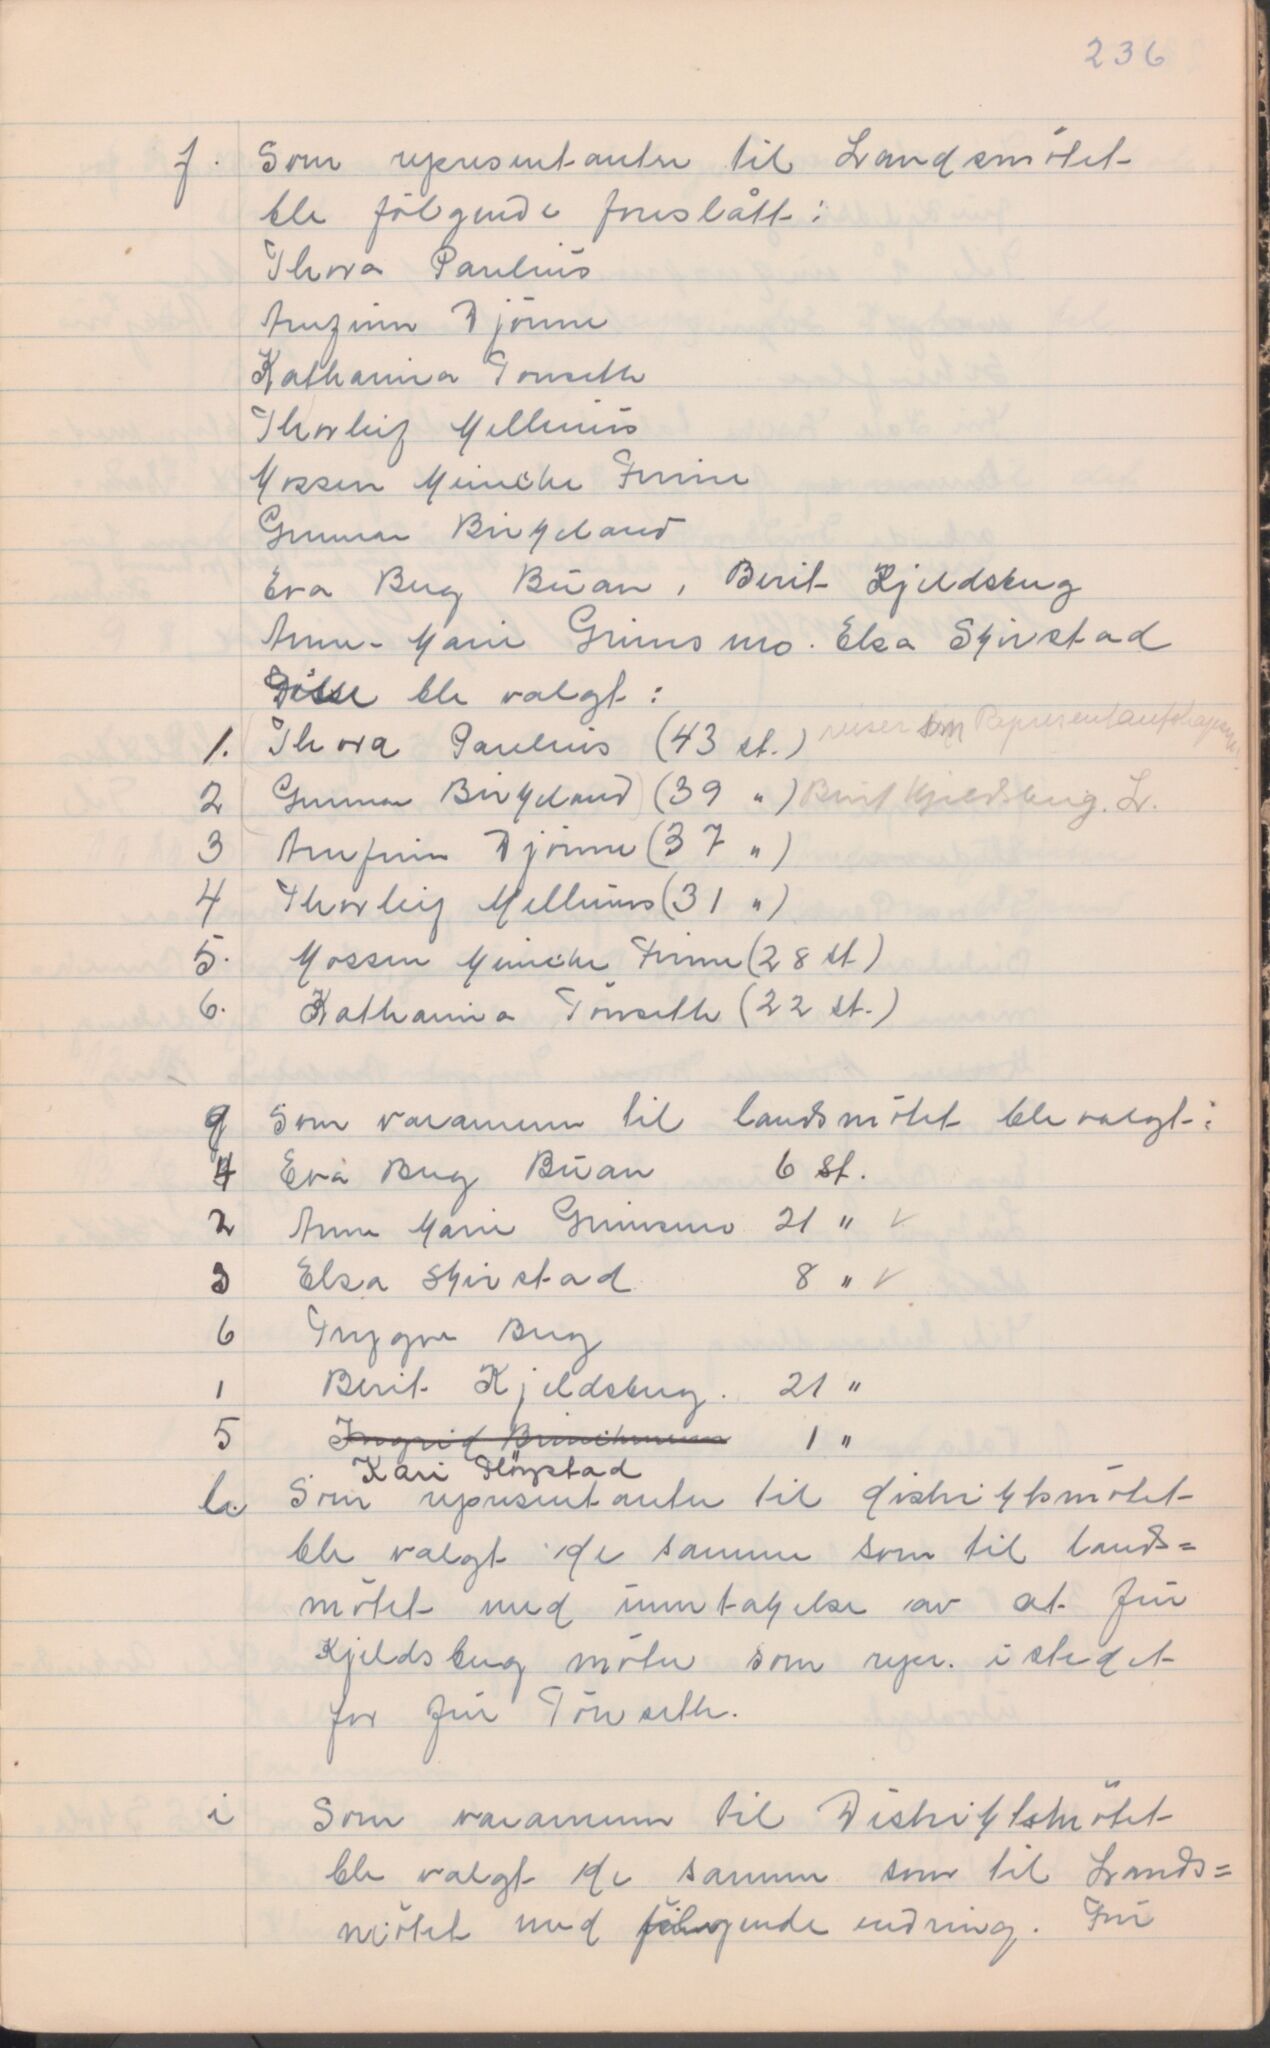 236
f. Som representanter til Landsmötet
ble fölgende foreslått:
Thora Paulius
Arnfinn Djönne
Katharina Tönseth
Thorleif Mellenius
Mossen Meincke Finne
Gunnar Birkeland
Eva Berg Buan, Berit Kjeldsberg
Anne-Marie Grimsmo. Elsa Skirstad
Disse ble valgt:
1. Thora Paulius (43 st.) reiser som Representantskapsm.
2 Gunnar Birkeland (39 ") Berit Kjeldsberg. L.
3 Arnfinn Djönne (37 ")
4 Thorleif Mellenius (31 ")
5. Mossen Meincke Finne (28 st)
6. Katharina Tönseth (22 st.)
g Som varamenn til landsmötet ble valgt:
4 Eva Berg Buan 6 st.
2 Anne Marie Grimsmo 21 " ✓
3 Elsa Skirstad 8 " ✓
6 Trygve Berg
1 Berit Kjeldsberg. 21 "
5 Ingrid Brinchmann 1 "
Kari Högstad
h. Som representanter til distriktsmötet
ble valgt de samme som til lands=
mötet med unntakelse av at fru
Kjeldsberg möter som repr. istedet
for fru Tönseth.
i Som varamenn til Distriktsmötet
ble valgt de samme som til Lands=
mötet med fölgende endring. Fru